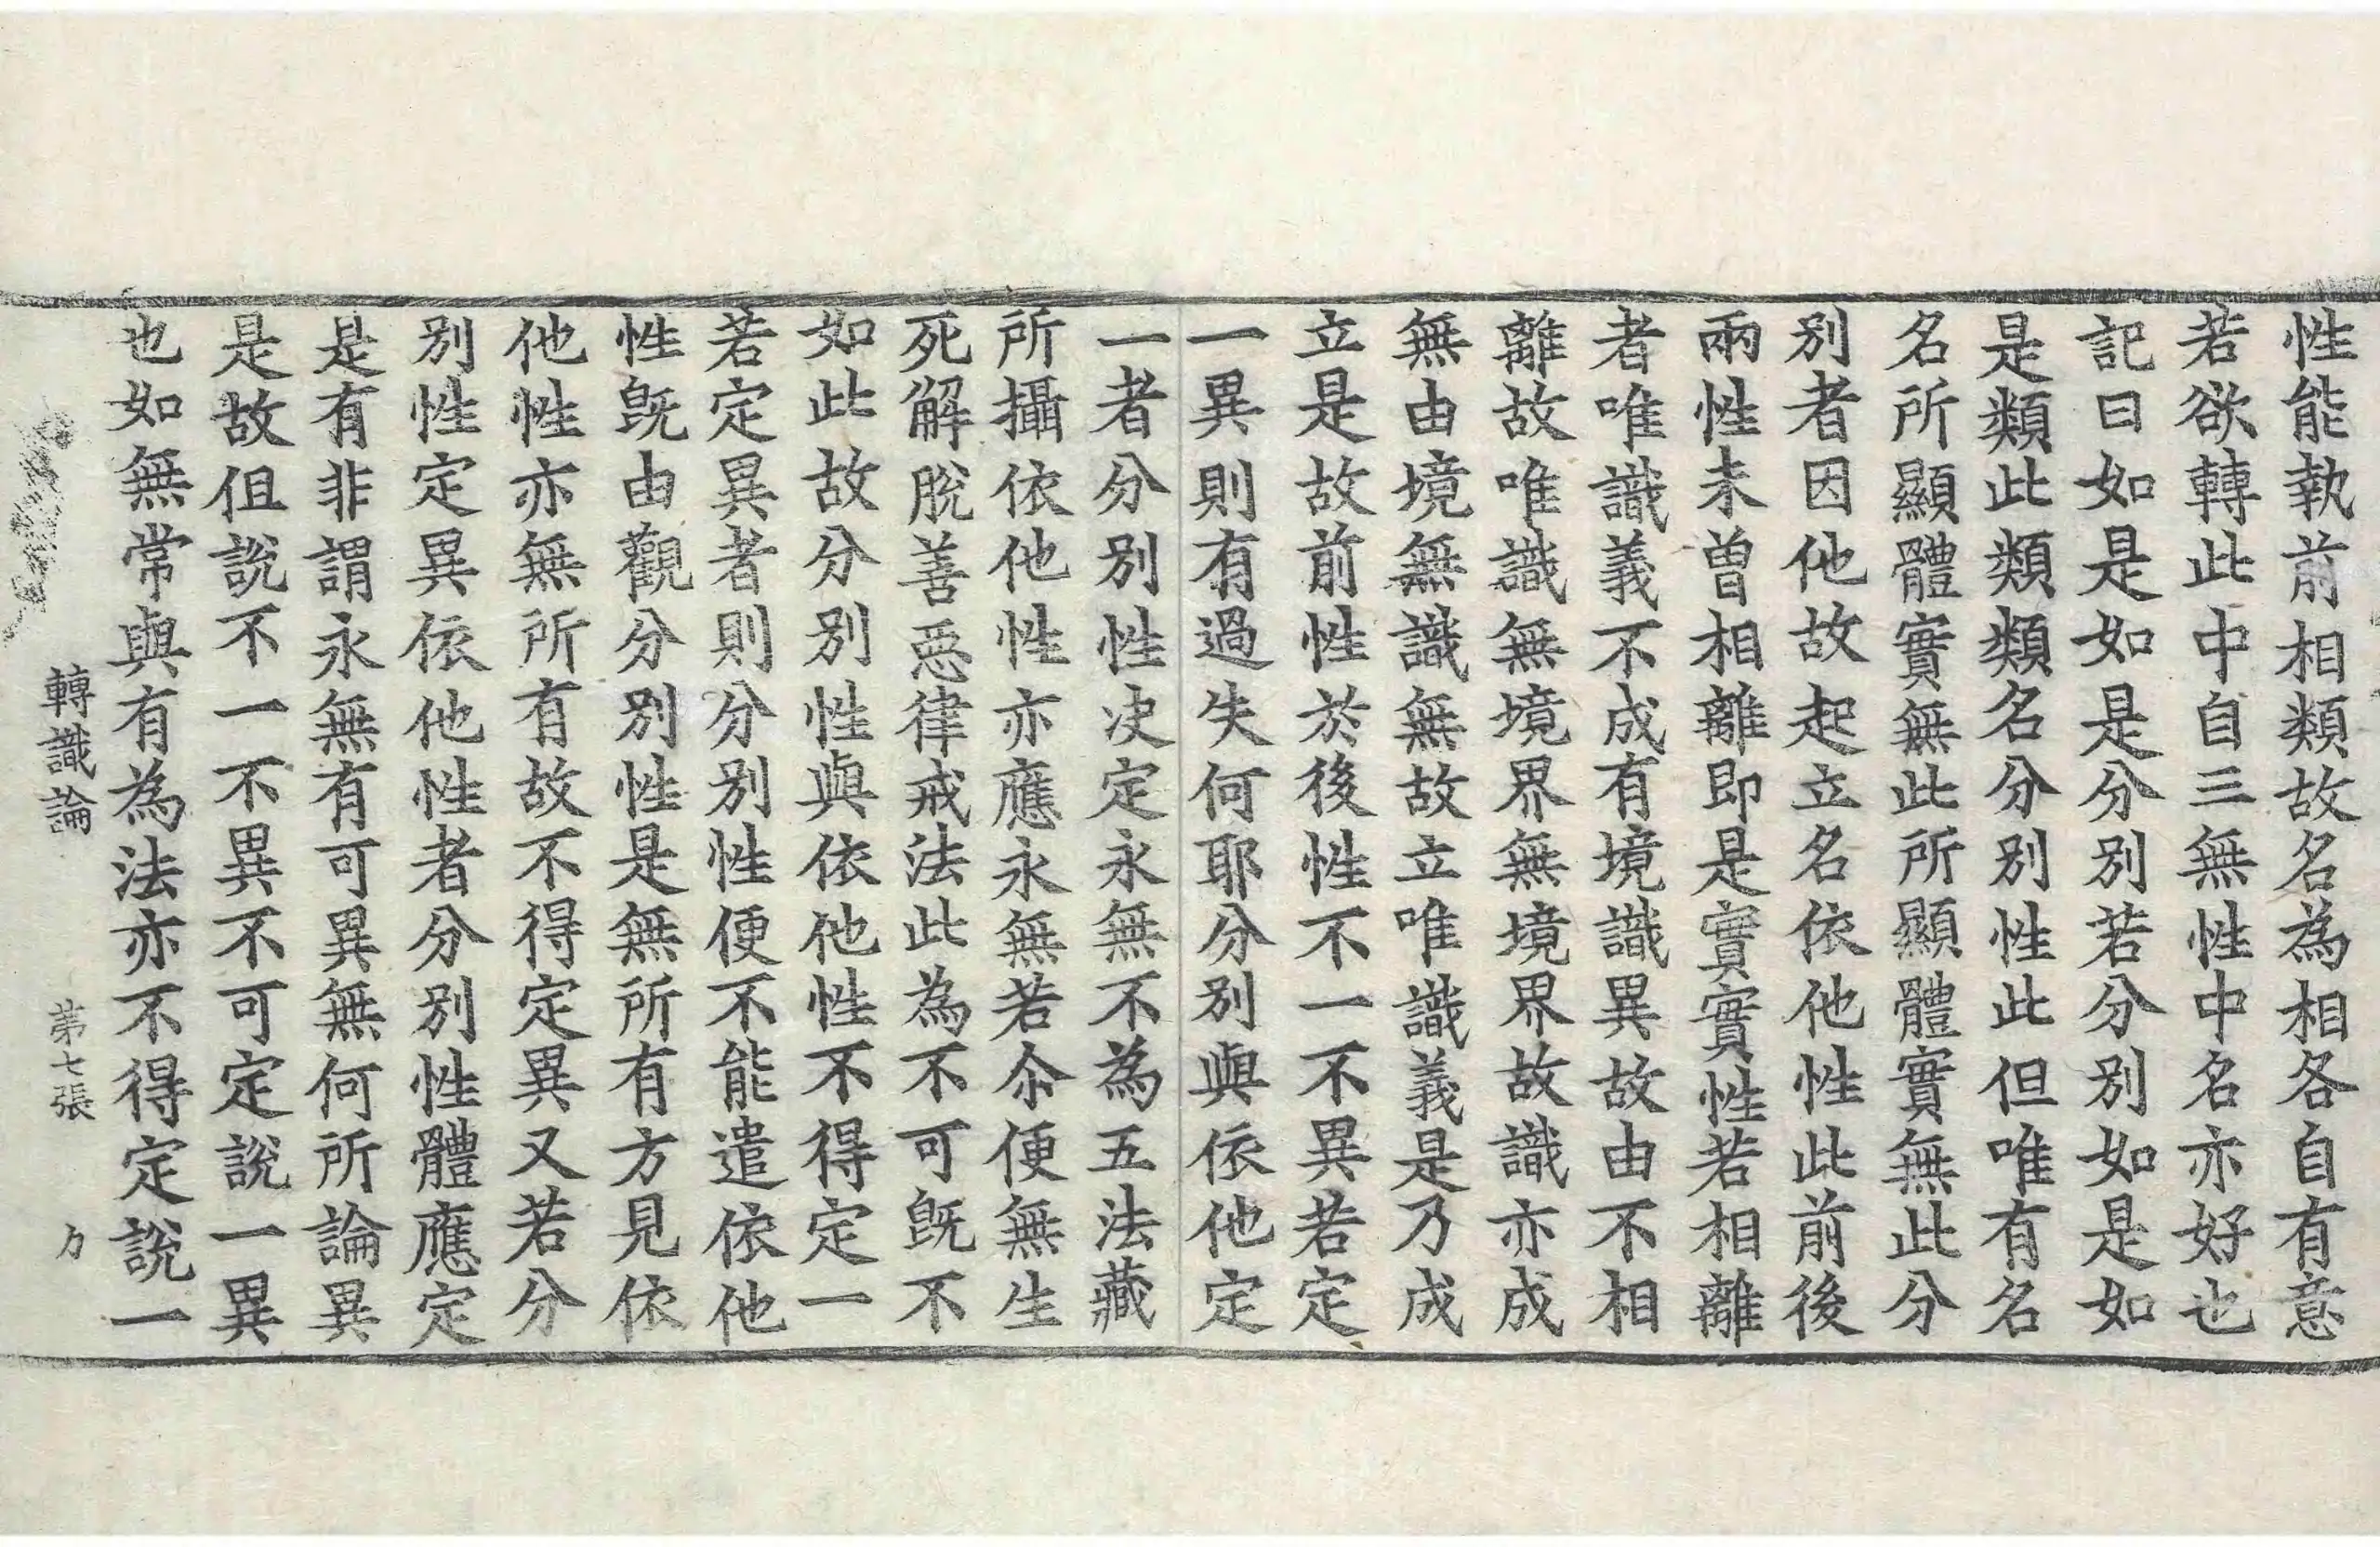 性能執前相類故名為相各自有意
若欲轉此中自三無性中名亦好也
記曰如是如是分別若分別如是如
是類此類類名分別性此但唯有名
名所顯體實無此所顯體實無此分
別者因他故起立名依他性此前後
兩性未曽相離即是實實性若相離
者唯識義不成有境識異故由不相
離故唯識無境界無境界故識亦成
無由境無識無故立唯識義是乃成
立是故前性於後性不一不異若定
一異則有過失何耶分別與依他定
一者分別性决定永無不為五法藏
所攝依他性亦應永無若尒便無生
死解脫善惡律戒法此為不可旣不
如此故分別性與依他性不得定一
若定異者則分別性便不能遣依他
性旣由觀分別性是無所有方見依
他性亦無所有故不得定異又若分
別性定異依他性者分別性體應定
是有非謂永無有可異無何所論異
是故伹說不一不異不可定說一異
也如無常與有為法亦不得定說一
轉識論 第七張 力